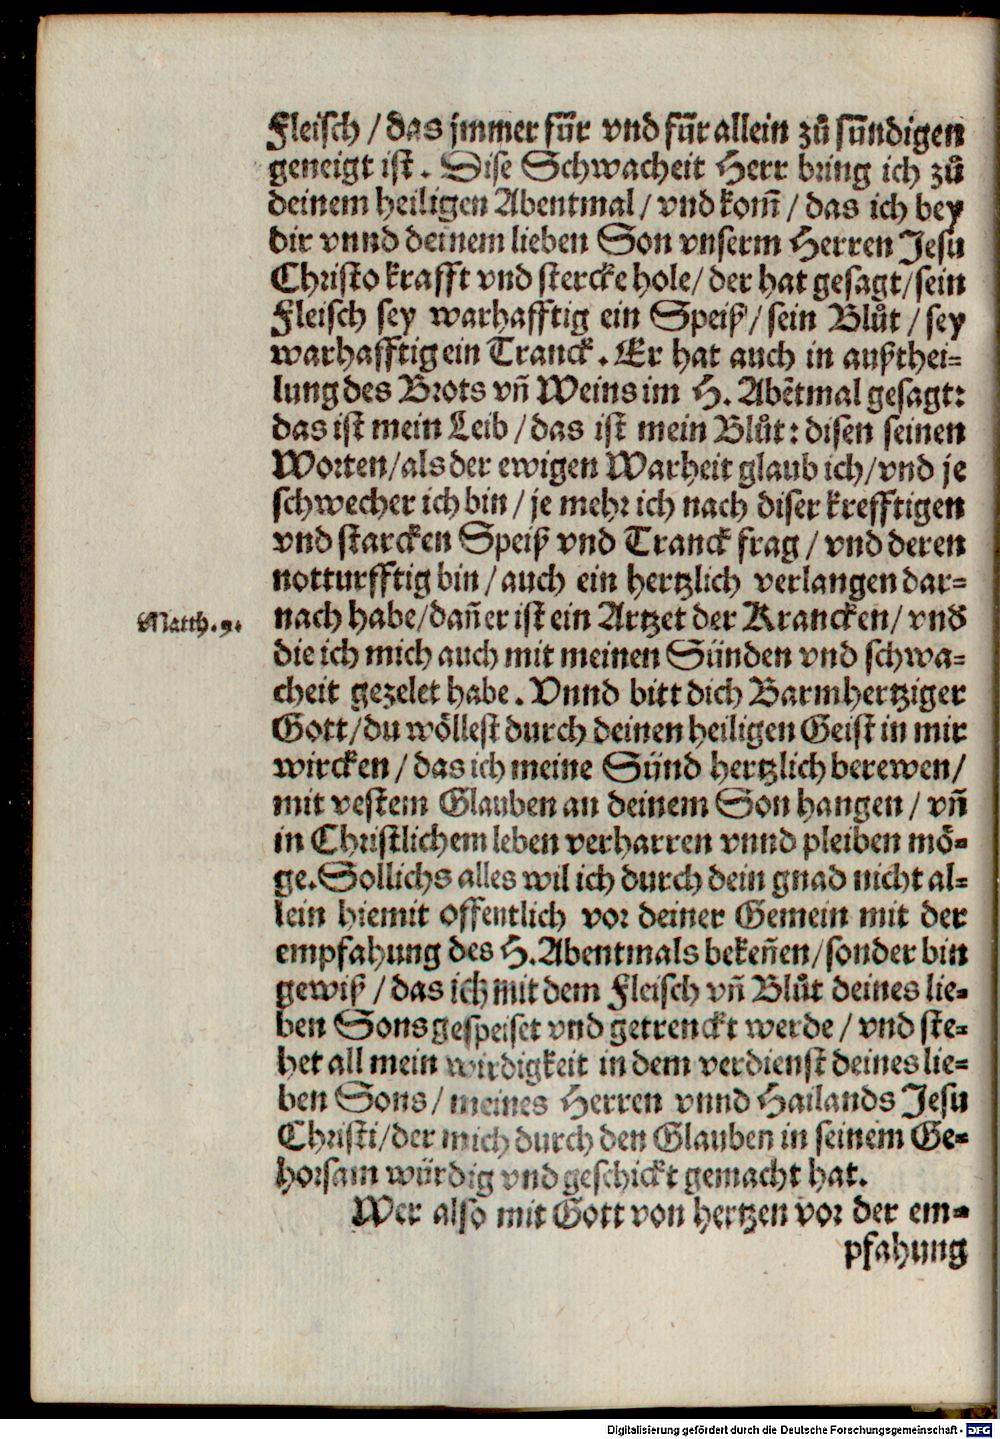 Fleisch / das jmmer für vnd für allein zů sündigen
geneigt ist. Dise Schwacheit Herr bring ich zů
deinem heiligen Abentmal / vnd kom̃ / das ich bey
dir vnnd deinem lieben Son vnserm Herren Jesu
Christo krafft vnd stercke hole / der hat gesagt / sein
Fleisch sey warhafftig ein Speiß / sein Blůt / sey
warhafftig ein Tranck. Er hat auch in außthei-
lung des Brots vñ Weins im H. Abẽtmal gesagt:
das ist mein Leib / das ist mein Blůt: disen seinen
Worten / als der ewigen Warheit glaub ich / vnd je
schwecher ich bin / je mehr ich nach diser krefftigen
vnd starcken Speiß vnd Tranck frag / vnd deren
notturfftig bin / auch ein hertzlich verlangen dar-
Matth. 9.
nach habe / dañ er ist ein Artzet der Krancken / vnd
die ich mich auch mit meinen Sünden vnd schwa-
cheit gezelet habe. Vnnd bitt dich Barmhertziger
Gott / du wöllest durch deinen heiligen Geist in mir
wircken / das ich meine Sünd hertzlich berewen /
mit vestem Glauben an deinem Son hangen / vñ
in Christlichem leben verharren vnnd pleiben mö-
ge. Sollichs alles wil ich durch dein gnad nicht al-
lein hiemit offentlich vor deiner Gemein mit der
empfahung des H. Abentmals bekeñen / sonder bin
gewiß / das ich mit dem Fleisch vñ Blůt deines lie-
ben Sons gespeiset vnd getrenckt werde / vnd ste-
het all mein wirdigkeit in dem verdienst deines lie-
ben Sons / meines Herren vnnd Hailands Jesu
Christi / der mich durch den Glauben in seinem Ge-
horsam würdig vnd geschickt gemacht hat.
Wer also mit Gott von hertzen vor der em-
pfahung
Digitalisierung gefördert durch die Deutsche Forschungsgemeinschaft - DFG